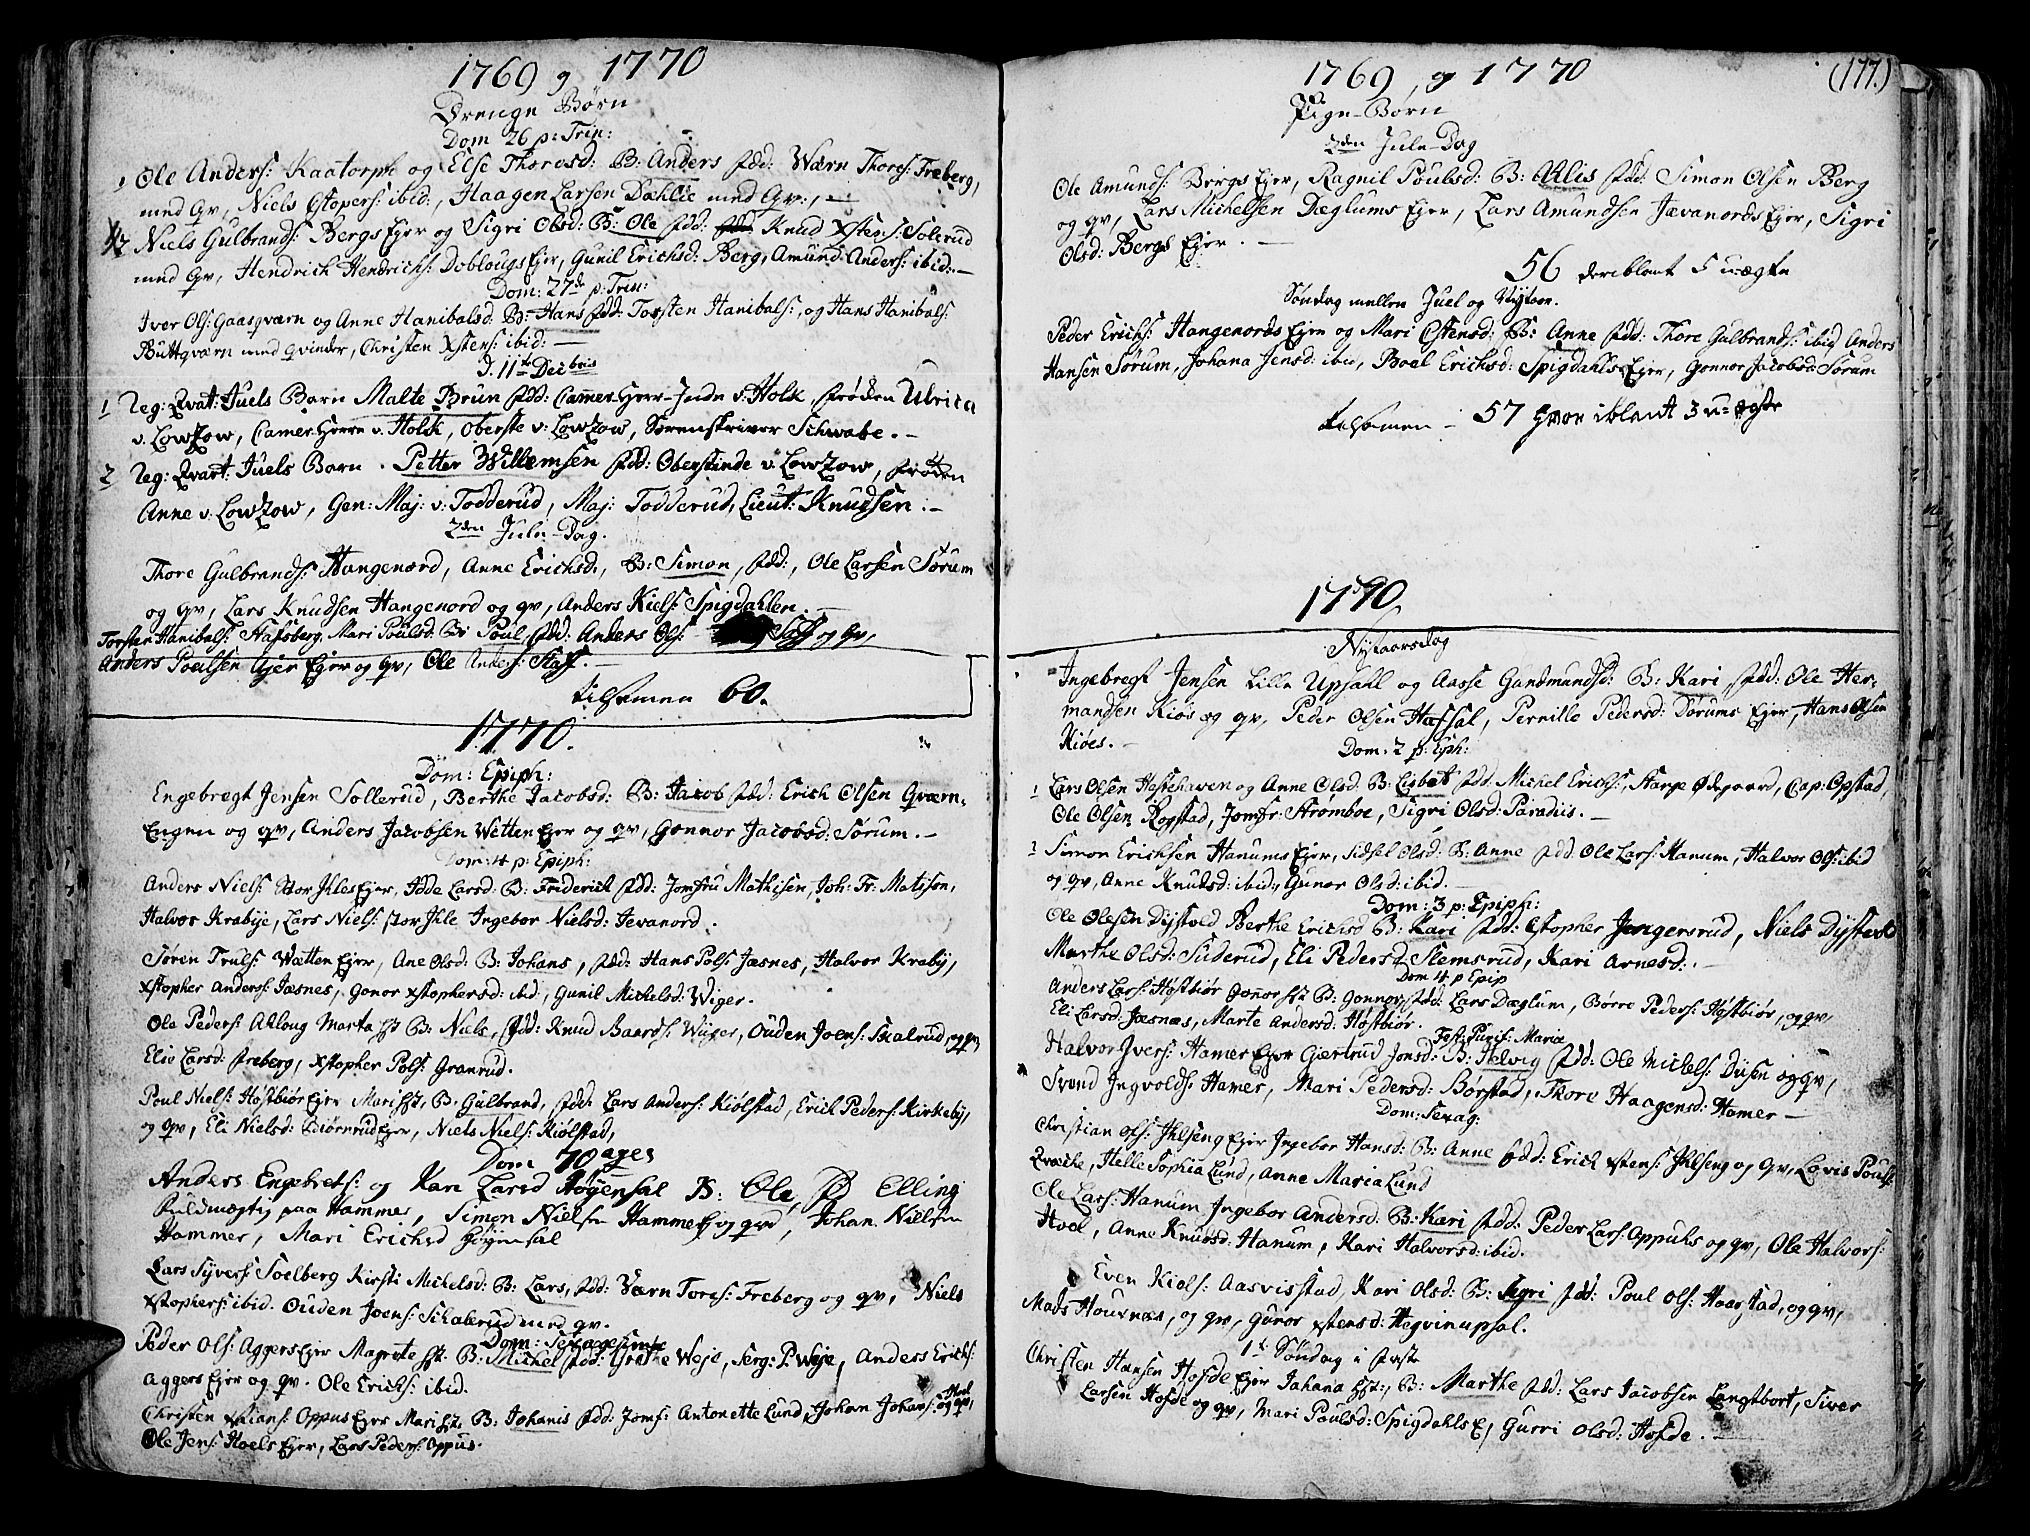 1769 og 1770
Drenge Børn
Dom 26 p: Trin:
1 Ole Anders: Kaatorph og Else Thoresd: B: Anders fdd: Wærn Thores: Freberg,
med Qv, Niels Xstopers: ibid:, Haagen Larsen Dæhlie med Qv:, —
2 Niels Gulbrands: Bergs Ejer og Sigri Olsd: B: Ole fdd: Knud Xstens: Solerud
med Qv, Hendrich Hendrichs: Doblougs Ejer, Gunil Erichsd: Berg, Amund Anders: ibid: —
Dom: 27de p: Trin:
Iver Ols: Gaasqværn og Anne Hanibalsd: B: Hans fdd: Torsten Hanibals:, og Hans Hanibals:
Buttqværn med Qvinder, Christen Xstens: ibid: —
D: 11te Decbris
1 Reg: Qvat: Juels Barn Malte Brun fdd: Camer Herr-Inde v: Holk, frøcken Ulrica
v. Lowzow, Camer Herre v. Holk, Oberste v: Lowzow, Sørenskriver Schwabe. —
2 Reg: Qvart: Juels Barn. Petter Willemsen fdd: Oberstinde v. Lowzow, frøcken
Anne v. Lowzow, Gen: Maj: v: Todderud, Maj: Todderud, Lieut: Knudsen. —
2den Jule-Dag.
Thore Gulbrands: Hangenærd, Anne Erichsd:, B: Simon, fdd:, Ole Larsen Sørum
og qv, Lars Knudsen Hangenord og qv, Anders Niels: Spigdahlen. —
Torsten Hanibals: Stafsberg, Mari Poulsd: B: Poul, fdd: Anders Ols: og qv,
Anders Poulsen Ejer og qv, Ole Anders: Staf. —
tilsamen 60.
1770.
Dom: Epiph:
Engebregt Jensen Sollerud, Berthe Jacobsd: B: Jacob fdd: Erich Olsen Qværn-
Engen og qv, Anders Jacobsen Wetten Ejer og qv, Gonnor Jacobsd: Sørum. —
Dom: 4 p: Epiph:
Anders Niels: Stor Ihles Ejer, Idde Larsd: B: Friderich fdd: Jomfru Mathisen, Joh: Fr: Matisen,
Halvor Krabye, Lars Niels: Stor Ihle Ingebor Nielsd: Jevanord.
Søren Truls: Wætten Ejer, Ane Olsd: B: Johans, fdd: Hans Pols: Jæsnes, Halvor Kraby,
Xstopher Anders: Jæsnes, Gonor Xstophersd: ibid, Gunil Michelsd: Wiger.
Ole Peders: Alloug Marta B: Niels, fdd: Knud Baards: Wiiger, Ouden Joens: Skalrud, og qv,
Elie Larsd: freberg, Xstopher Pols: Granrud.
Poul Niels: Høstbiør Ejer Mari B: Gulbrand, fdd: Lars Anders: Kiølstad, Erich Peders: Kirkeby,
og qv, Eli Nielsd: Biørnrud Ejer, Niels Niels: Kiølstad,
Dom 70ages
Anders Engebrets: og Kari Larsd Høyensal B: Ole, fd Elling
Fuldmægtig paa Hammer, Simon Nielsen Hammer Ej og qvd, Johan Nielsen
Hammer, Mari Erichsd Høyensal
Lars Syvers: Soelberg Kirsti Michelsd: B: Lars, fdd: Værn Tores: Freberg og qv, Niels
Xstophers: ibid. Ouden Joens: Schalerud med qv.
Dom: Sexagesimæ
Peder Ols: Aggers Ejer Magrete B: Michel fdd: Grethe Weje, Serg: P. Weje, Anders Erichs:
Aggers Ejer og qv. Ole Erichs: ibid.
Christen Xstians: Oppus Ejer Mari B: Johanis fdd: Jomf: Antonette Lund, Johan Johans: Hoel og qv,
Ole Jens: Hoels Ejer, Lars Peders: Oppus.
1769, og 1770
(177.)
Pige-Børn
2den Jule-Dag
Ole Amunds: Bergs Ejer, Ragnil Poulsd: B: Alis fdd: Simon Olsen Berg
og qv, Lars Michelsen Dæglums Ejer, Lars Amundsen Jævanords Ejer, Sigri
Olsd: Bergs Ejer. —
56 deriblant 5 u-ægte
Søndag mellem Juel og Nytaar.
Peder Erichs: Hangenords Ejer og Mari Ostensd: B: Anne fdd: Thore Gulbrands: ibid Anders
Hansen Sørum, Johana Jensd: ibid, Boel Erichsd: Spigdahls Ejer, Gonnor Jacobsd Sørum
tilsamen — 57 hvor iblant 3 u-ægte
1770.
Nytaarsdag
Ingebregt Jensen Lille Uphall og Aasse Gundmundsd: B: Kari, fdd: Ole Her-
mandsen Kiøs og qv, Peder Olsen Hæssal, Pernille Pedersd: Sørums Ejer, Hans Olsen
Kiøes. —
Dom: 2 p: Eph:
1 Lars Olsen Hostehaven og Anne Olsd: B: Lisbet fdd: Michel Erichs:, Starpe Ødegaard, Cap: Opstad,
Ole Olsen Rogstad, Jomfr: Strømboe, Sigri Olsd: Paradiis. —
2 Simon Erichsen Hanums Ejer, Sidsel Olsd: B: Anne fdd: Ole Lars: Hanum, Halvor Ols: ibid
og qv, Anne Knudsd: ibid:, Gunor Olsd: ibid. —
Dom: 3 p: Epiph:
Ole Olesen Dystvold Berthe Erichsd B: Kari fdd: Xstopher Jengersrud, Niels Dystvold
Marthe Olsd: Suderud, Eli Pedersd Slemsrud, Kari Arnesd: . —
Dom 4 p Epip
Anders Lars: Høstbiør Gonnor B: Gonnor, fdd: Lars Dæglum, Børre Peders: Høstbiør, og qv,
Eli Larsd: Jæsnæs, Marte Andersd: Høstbiør.
Fest: Purif: Mariæ
Halvor Ivers: Hamer Ejer Gjertrud Jonsd: B: Helvig fdd: Ole Michels: Dysen og qv,
Svend Ingvolds: Hamer, Mari Pedersd: Børstad, Thore Haagensd: Hamer —
Dom: Sexag:
Christian Ols: Ihlseng Ejer Ingebor Hansd: B: Anne fdd: Erich Xstens: Ihlseng og qv, Lovis Pouls:
Qvæche, Helle Sophia Lund, Anne Maria Lund
Ole Lars: Hanum Ingebor Andersd: B: Kari fdd: Peder Lars: Oppuhs og qv, Ole Halvors:
Hoel, Anne Knudsd: Hanum, Kari Halvorsd: ibid.
Even Kiols: Aasvisstad, Kari Olsd: B: Sigri fdd: Poul Ols: Haarstad, og qv,
Mads Hournæs, og qv, Gunor Xstensd: Hegvinupsal.
1te Søndag i faste
Christen Hansen Hofde Ejer Johana B: Marthe fdd: Lars Jacobsen Langtbort, Siver
Larsen Hofde og qv, Mari Poulsd: Spigdahls Ej, Gurri Olsd: Hofde. —